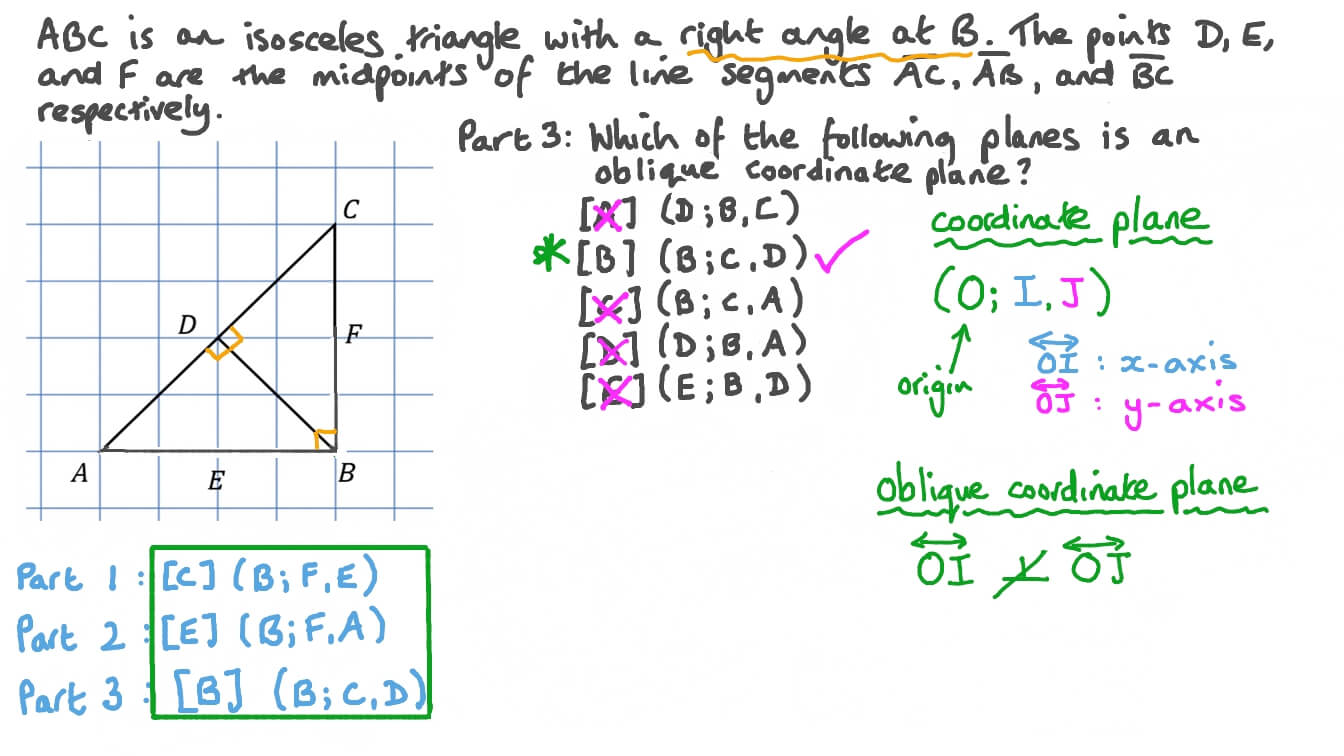 ABC is an isosceles triangle with a right angle at B. The points D, E,
and F are the midpoints of the line segments AC, AB, and BC
respectively.
Part 3: Which of the following planes is an
oblique coordinate plane?
[A] (D;B,C)
*[B] (B;C,D) ✓
[C] (B;C,A)
[D] (D;B,A)
[E] (E;B,D)
coordinate plane
(O; I, J)
origin
OI : x-axis
OJ : y-axis
oblique coordinate plane
OI ⊥̸ OJ
C
D
F
A
E
B
Part 1 : [C] (B; F, E)
Part 2 : [E] (B; F, A)
Part 3 : [B] (B; C, D)